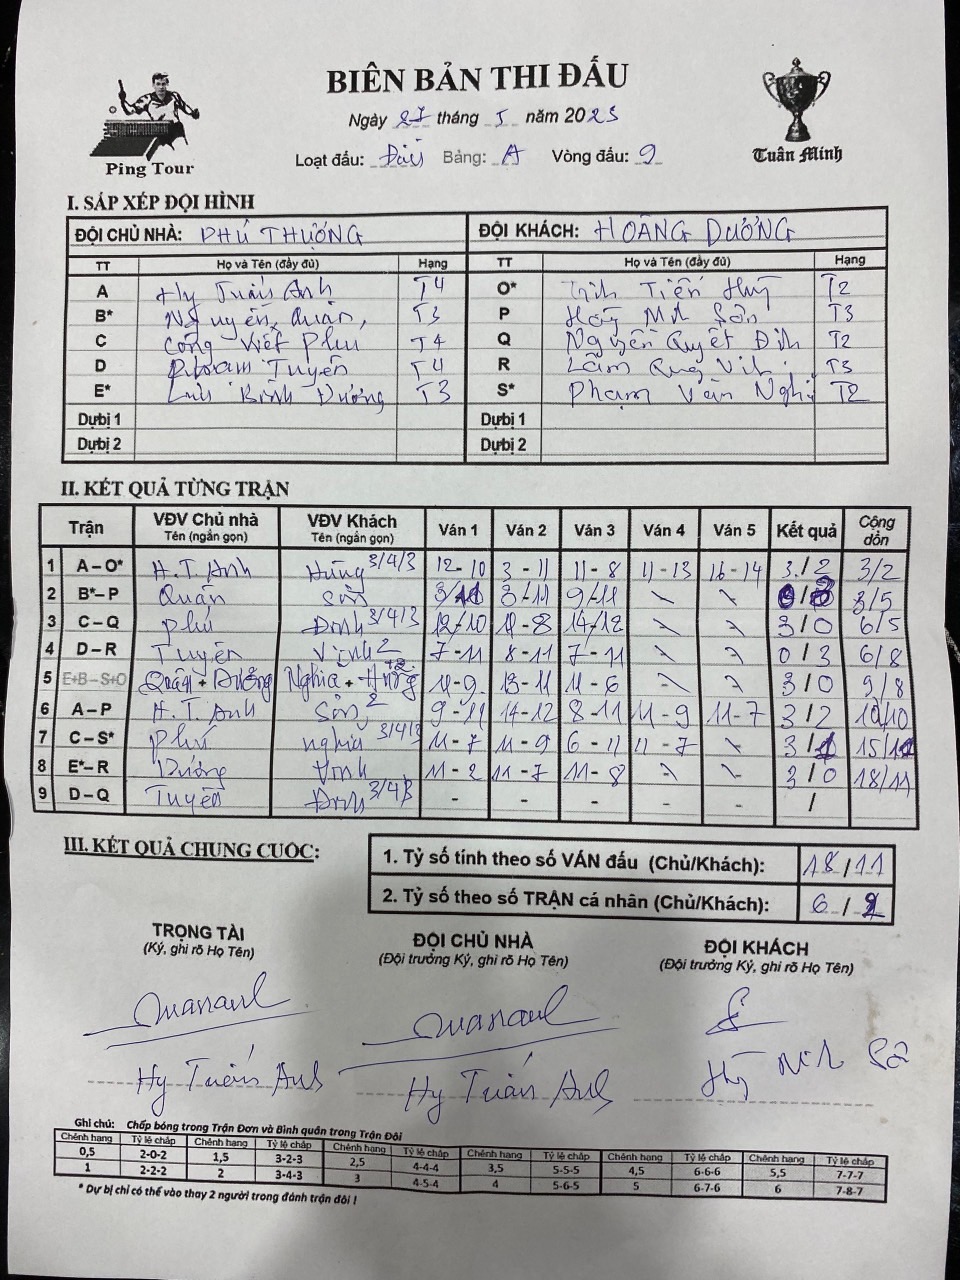 BIÊN BẢN THI ĐẤU
Ngày 27 tháng 5 năm 2023
Loạt đấu: Bảng: A Vòng đấu: 9
Ping Tour
Tuấn Minh
I. SẮP XẾP ĐỘI HÌNH
ĐỘI CHỦ NHÀ: PHÚ THƯỢNG ĐỘI KHÁCH: HOÀNG DƯƠNG
TT Họ và Tên (đầy đủ) Hạng TT Họ và Tên (đầy đủ) Hạng
A Hy Tuấn Anh T4 O* Tiến T2
B* Nguyễn Quân T3 P T3
C Công Viết Phú T4 Q Nguyễn Quyết Định T2
D Phạm Tuyên T4 R Lâm Quý T3
E* Bình Dương T3 S* Phạm Văn Nghị T2
Dự bị 1 Dự bị 1
Dự bị 2 Dự bị 2
II. KẾT QUẢ TỪNG TRẬN
Trận VĐV Chủ nhà Tên (ngắn gọn) VĐV Khách Tên (ngắn gọn) Ván 1 Ván 2 Ván 3 Ván 4 Ván 5 Kết quả Cộng dồn
1 A – O* H.T. Anh Hùng 3/4/3 12-10 3-11 11-8 11-13 16-14 3/2 3/2
2 B* – P Quân Sơn 3/11 8-11 9-11 3/5
3 C – Q Phú Định 3/4/3 12-10 11-8 14-12 3/0 6/5
4 D – R Tuyên Vịnh 2 7-11 8-11 7-11 0/3 6/8
5 E+B – S+O Quân + Dương Nghĩa + Hùng 11-9 13-11 11-6 3/0 9/8
6 A – P H.T. Anh Sơn 2 9-11 14-12 8-11 11-9 11-7 3/2 10/10
7 C – S* Phú Nghĩa 3/4/3 11-7 11-9 6-11 11-7 3/1 15/11
8 E* – R Dương Vịnh 11-2 11-7 11-8 3/0 18/11
9 D – Q Tuyên Định 3/4/3 - - - - - /
III. KẾT QUẢ CHUNG CUỘC:
1. Tỷ số tính theo số VÁN đấu (Chủ/Khách): 18/11
2. Tỷ số theo số TRẬN cá nhân (Chủ/Khách): 6/2
TRỌNG TÀI ĐỘI CHỦ NHÀ ĐỘI KHÁCH
(Ký, ghi rõ Họ Tên) (Đội trưởng Ký, ghi rõ Họ Tên) (Đội trưởng Ký, ghi rõ Họ Tên)
Hy Tuấn Anh Hy Tuấn Anh
Ghi chú: Chấp bóng trong Trận Đơn và Bình quân trong Trận Đôi
Chênh hạng Tỷ lệ chấp Chênh hạng Tỷ lệ chấp Chênh hạng Tỷ lệ chấp Chênh hạng Tỷ lệ chấp Chênh hạng Tỷ lệ chấp Chênh hạng Tỷ lệ chấp
0,5 2-0-2 1,5 3-2-3 2,5 4-4-4 3,5 5-5-5 4,5 6-6-6 5,5 7-7-7
1 2-2-2 2 3-4-3 3 4-5-4 4 5-6-5 5 6-7-6 6 7-8-7
* Dự bị chỉ có thể vào thay 2 người trong đánh trận đôi !